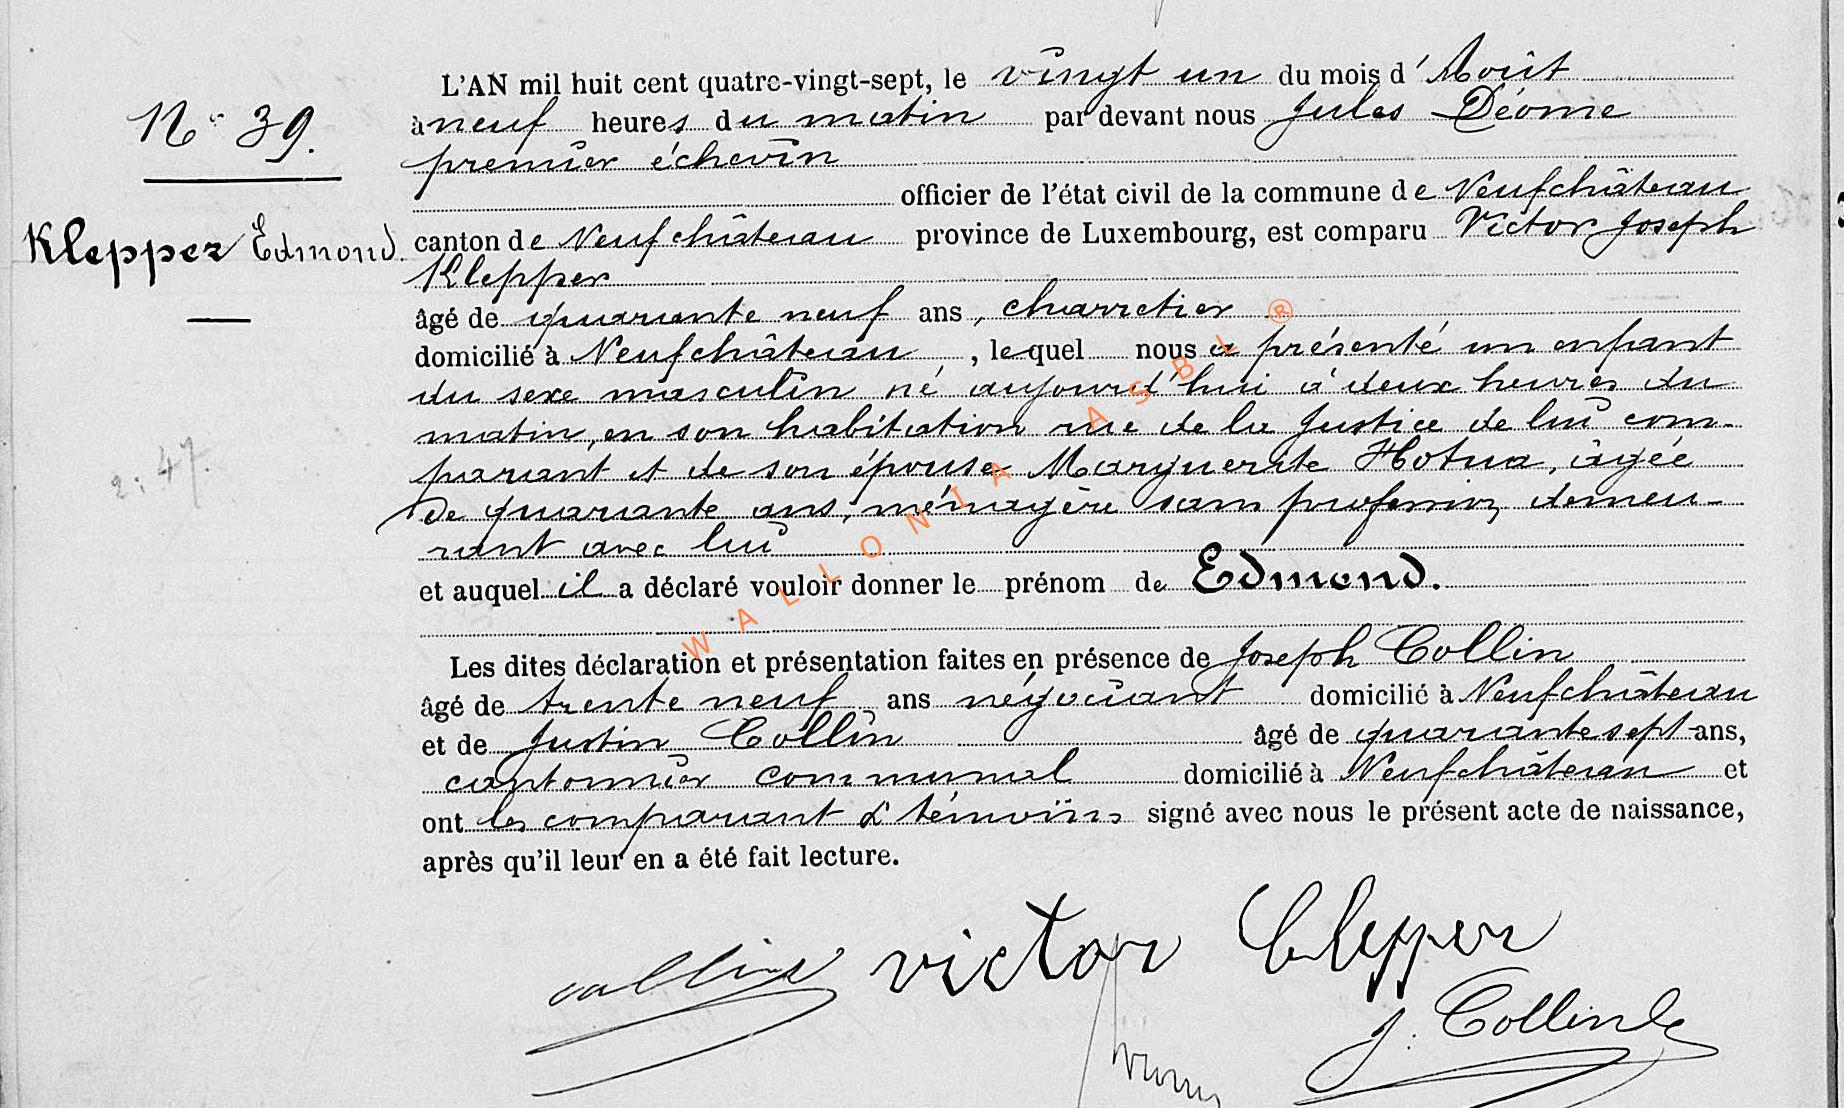 N° 39.
Klepper Edmond.
2: 47.
L'AN mil huit cent quatre-vingt-sept, le vingt un du mois d'Août
à neuf heures du matin par devant nous Jules Déome
premier échevin
officier de l'état civil de la commune de Neufchâteau
canton de Neufchâteau province de Luxembourg, est comparu Victor Joseph
Klepper
âgé de quarante neuf ans, charretier
domicilié à Neufchâteau, lequel nous a présenté un enfant
du sexe masculin né aujourd'hui à deux heures du
matin, en son habitation rue de la Justice de lui com-
parant et de son épouse Marguerite Hotua, âgée
de quarante ans, ménagère sans profession, demeu-
rant avec lui
et auquel il a déclaré vouloir donner le prénom de Edmond.
Les dites déclaration et présentation faites en présence de Joseph Collin
âgé de trente neuf ans négociant domicilié à Neufchâteau
et de Justin Collin âgé de quarante sept ans,
cantonnier communal domicilié à Neufchâteau et
ont les comparant & témoins signé avec nous le présent acte de naissance,
après qu'il leur en a été fait lecture.
victor Clepper
J. Collin
WALLONIA ASBL ®